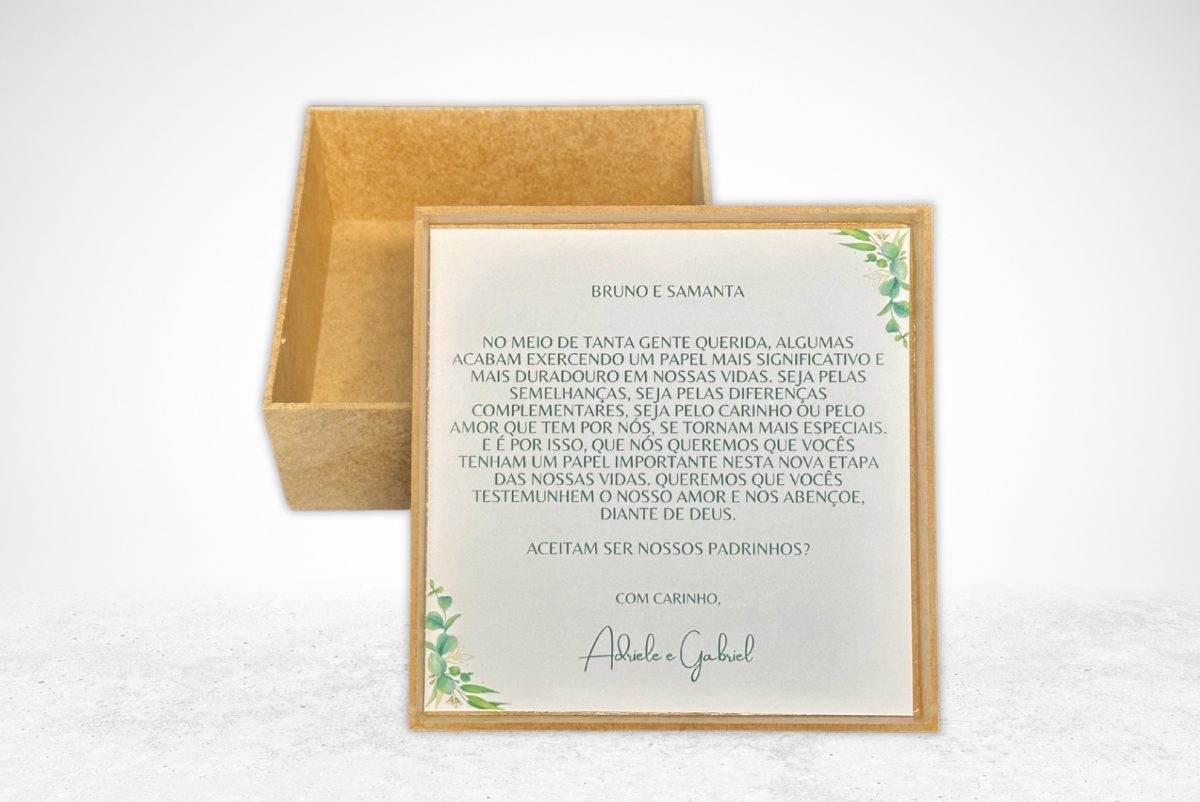 BRUNO E SAMANTA
NO MEIO DE TANTA GENTE QUERIDA, ALGUMAS
ACABAM EXERCENDO UM PAPEL MAIS SIGNIFICATIVO E
MAIS DURADOURO EM NOSSAS VIDAS. SEJA PELAS
SEMELHANÇAS, SEJA PELAS DIFERENÇAS
COMPLEMENTARES, SEJA PELO CARINHO OU PELO
AMOR QUE TEM POR NÓS, SE TORNAM MAIS ESPECIAIS.
E É POR ISSO, QUE NÓS QUEREMOS QUE VOCÊS
TENHAM UM PAPEL IMPORTANTE NESTA NOVA ETAPA
DAS NOSSAS VIDAS. QUEREMOS QUE VOCÊS
TESTEMUNHEM O NOSSO AMOR E NOS ABENÇOE,
DIANTE DE DEUS.
ACEITAM SER NOSSOS PADRINHOS?
COM CARINHO,
Adriele e Gabriel